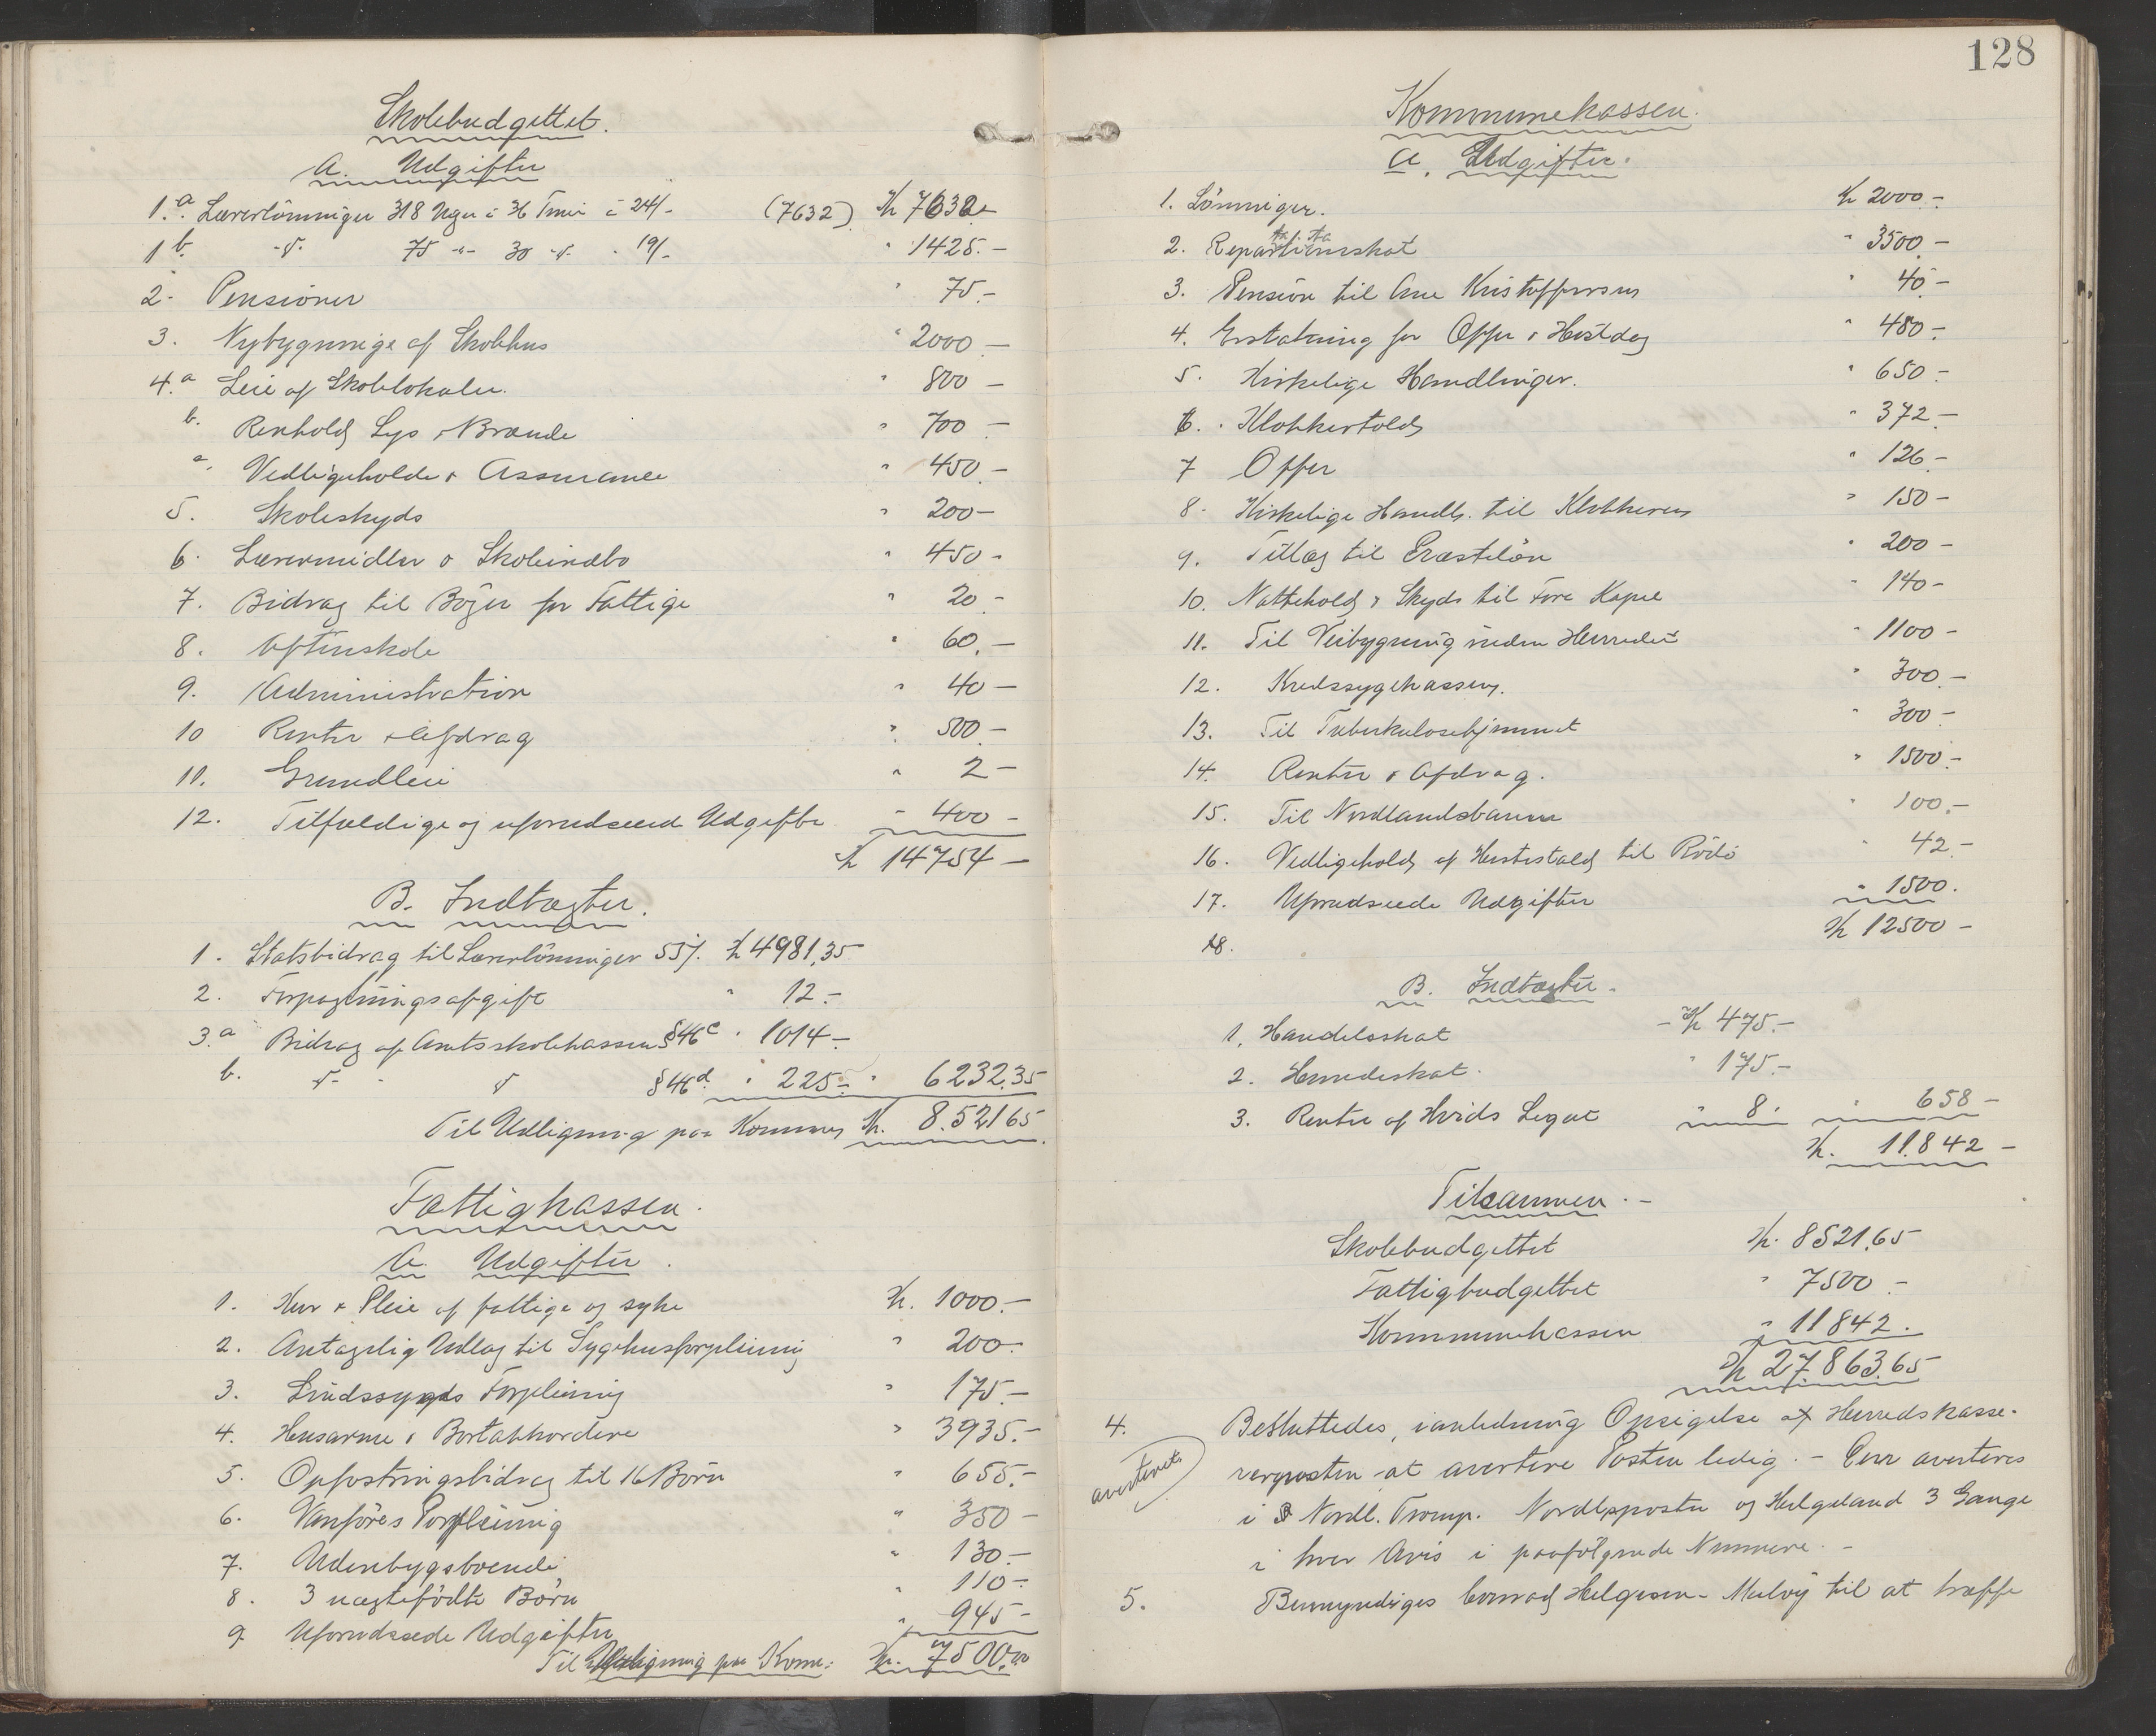 Skolebudgettet.
A. Udgifter
1.a. Lærerlönninger 318 Uger à 36 Timer à 24/- (7632) Kr 7632-
1b. -"- 75 -"- 30 -"- " 19/- " 1425.-
2. Pensioner " 75.-
3. Nybygninge af Skolehus " 2000-
4.a Leie af Skolelokaler. " 800-
b. Renhold Lys & Brænde " 700-
c. Vedligeholde & Assurance " 450-
5. Skoleskyds " 200-
6. Lærermidler o Skoleindbo " 450-
7. Bidrag til Bøger for Fattige " 20-
8. Aftenskole " 60.-
9. Administration " 40-
10 Renter & Afdrag " 500-
11. Grundleie " 2-
12. Tilfældige og uforudseede Udgifter " 400-
Kr 14754-
B. Indtægter.
1. Statsbidrag til Lærerlönninger 55% Kr 4981,35
2. Forpagtningsafgift " 12.-
3.a Bidrag af Amtsskolekassen §46c " 1014-
b. -"- " §46d. " 225- " 6232.35
Til Udligning paa Kommunen Kr. 8.521 65.
Fattigkassen.
A. Udgifter.
1. Kur & Pleie af fattige og syke Kr. 1000.-
2. Antagelig Udlæg til Sygehusforpleining " 200-
3. Sindssygds Forpleining " 175.-
4. Husarme & Bortakkordere " 3935.-
5. Opfostringsbidrag til 16 Börn " 655.-
6. Vanföres Forpleining " 350-
7. Udenbygsboende " 130.-
8. 3 uægtefödte Börn " 110-
9 Uforudseede Udgifter " 945-
Til Udligning paa Komm: Kr. 7500,00
128
Kommunekassen.
A. Udgifter.
1. Lönninger. Kr 2000.-
2. Repartitionsskat " 3500.-
3. Pension til Ane Kristoffersen " 40-
4. Erstatning for Offer & Höstdag " 480-
5. Kirkelige Handlinger. " 650-
6. Klokkertold " 372.-
7 Offer " 126-
8. Kirkelige Handl. til Klokkeren " 150-
9. Tillæg til Præstelön " 200-
10. Nattehold & Skyds til Fore Kapel " 140-
11. Til Veibygning inden Herredet " 1100-
12. Kredssygekassen. " 300-
13. Til Tuberkulosehjemmet " 300-
14. Renter & Afdrag. " 1500-
15. Til Nordlandsbanen " 100.-
16. Vedligehold af Hestestald til Rödö " 42-
17. Uforudseede Udgifter " 1500.
18. Kr 12500-
B. Indtægter.
1. Handelsskat - Kr 475.-
2. Herredsskat. " 175.-
3. Renter af Hvids Legat " 8- " 658-
Kr. 11.842-
Tilsammen.-
Skolebudgettet Kr. 8521,65
Fattigbudgettet " 7500-
Kommunekassen " 11842.
Kr 27.863.65
4. Besluttedes, i anledning Opsigelse af Herredskasse-
avertert rerposten at avertere Posten ledig. - Den averteres
i Nordl. Tromp. Nordlxposten og Helgeland 3 Gange
i hver Avis i paafölgende Numere. -
5. Bemyndiges Conrad Helgesen-Melvig til at træffe